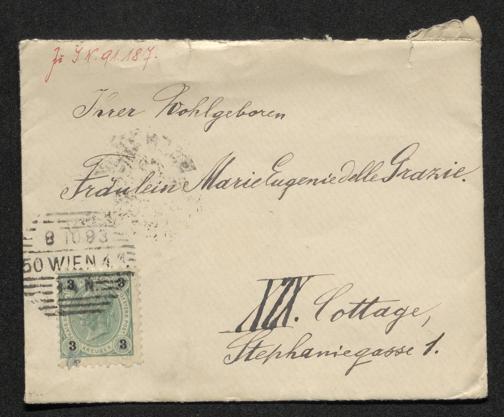 Zu I.N. 91.187.
Ihrer Wohlgeboren
Fräulein Marie Eugenie delle Grazie.
8 10 93
50 WIEN 4 1
3 N. 3
3 3
XIX. Cottage,
Stephaniegasse 1.